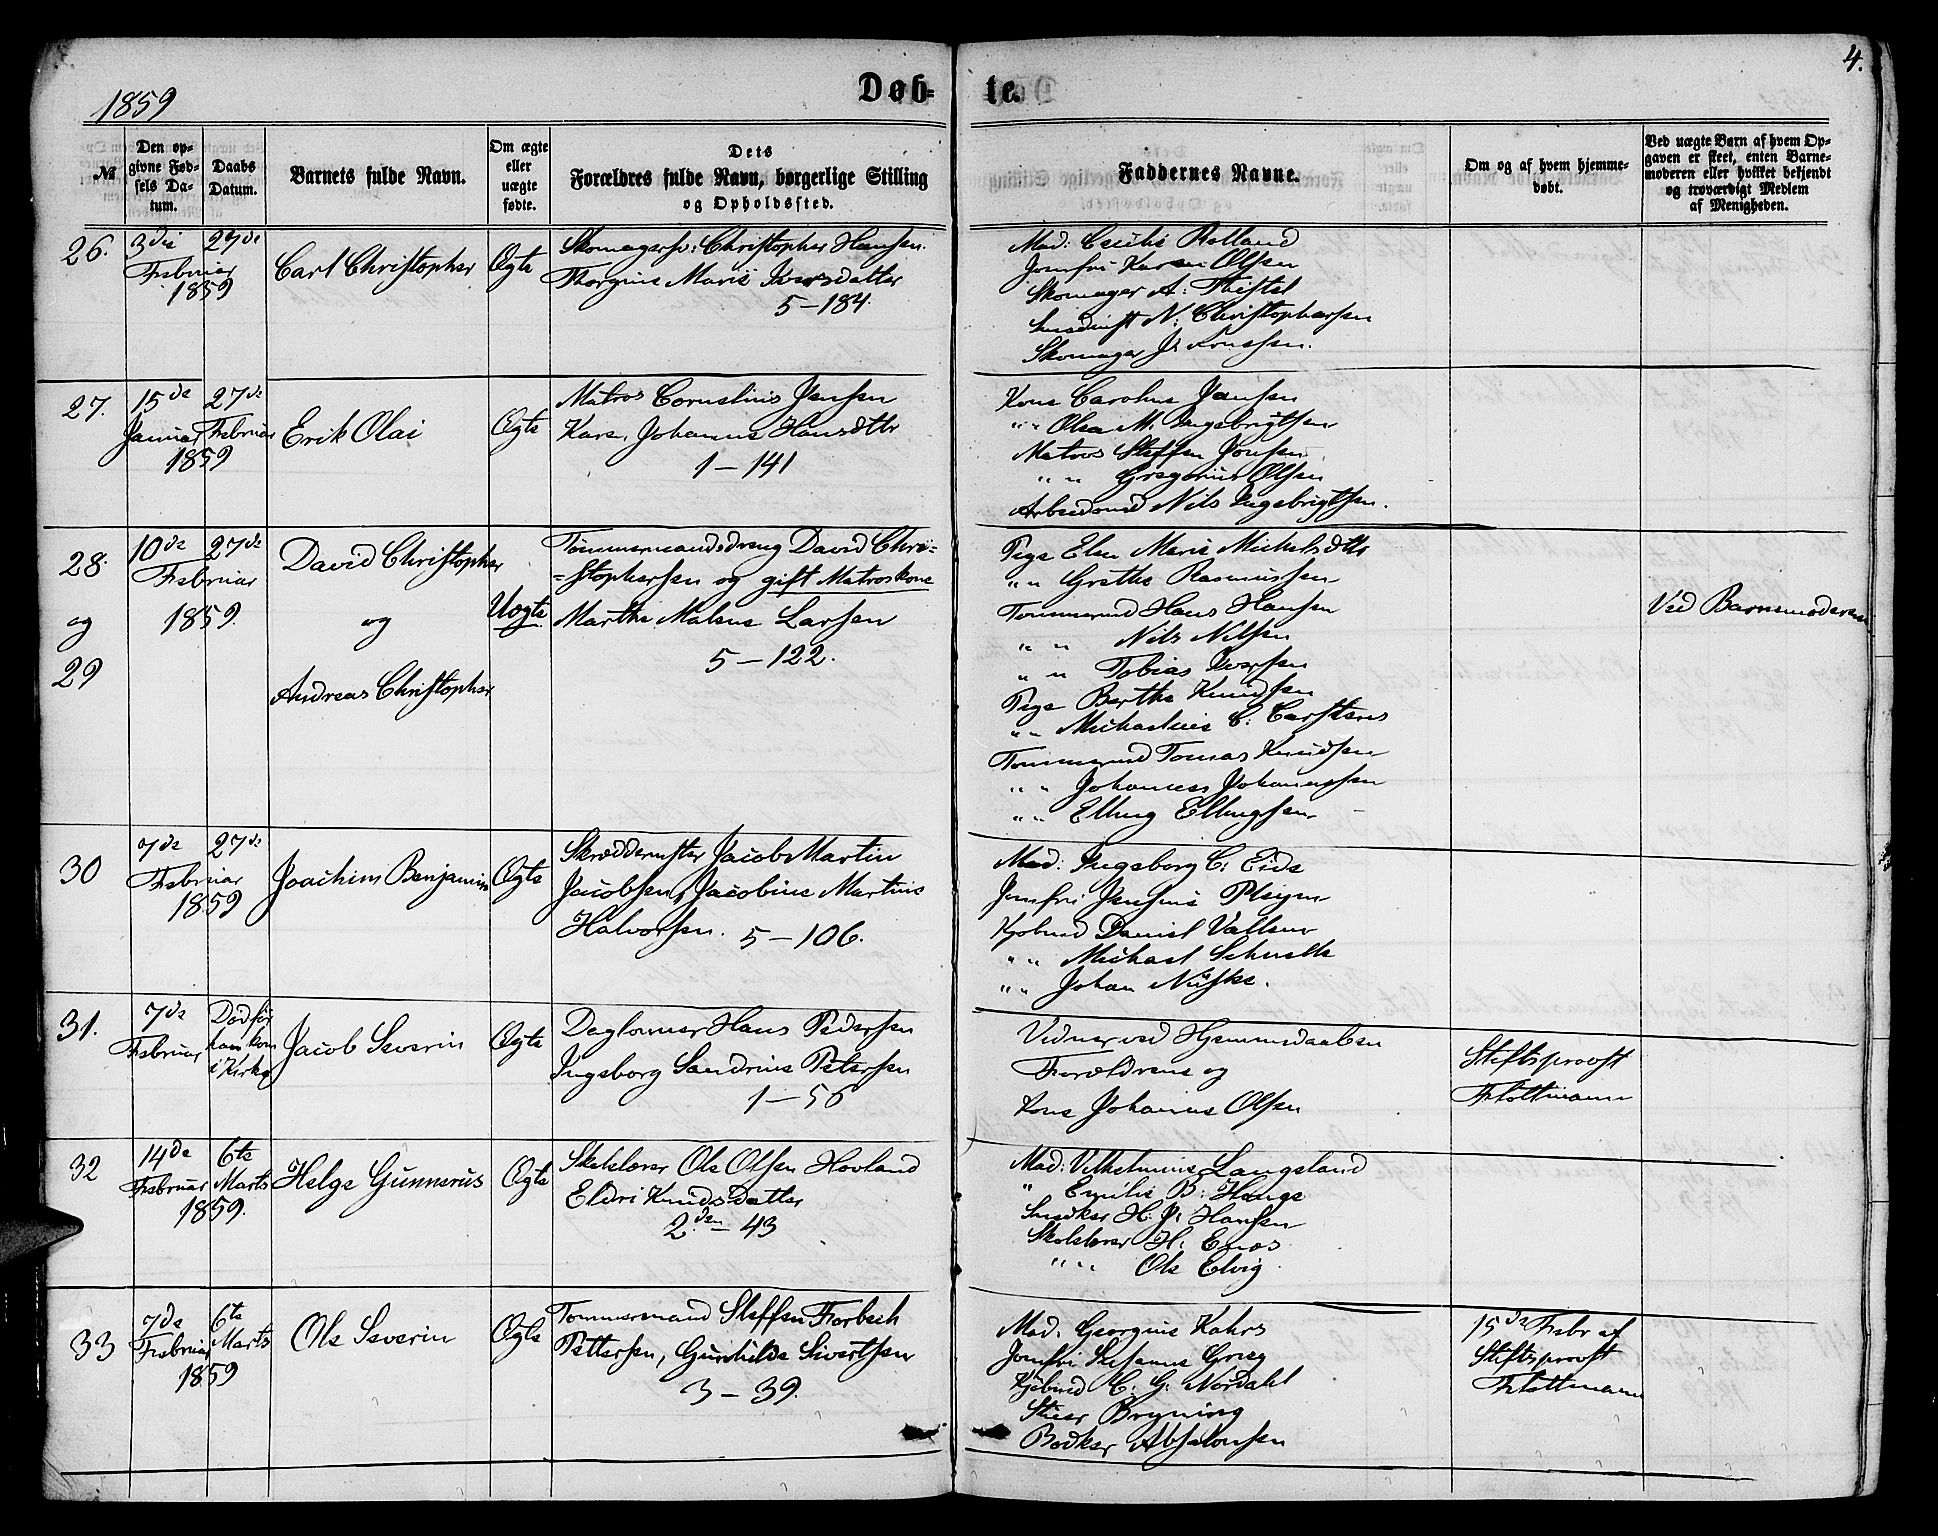 4.
1859
Døb-
te.
№
Den op-
givne Fød-
sels Da-
tum.
Daabs
Datum.
Barnets fulde Navn.
Om ægte
eller
uægte
fødte.
Dets
Forældres fulde Navn, borgerlige Stilling
og Opholdssted.
Faddernes Navne.
Om og af hvem hjemme-
døbt.
Ved uægte Børn af hvem Op-
gaven er skeet, enten Barne-
moderen eller hvilket bekjendt
og troværdigt Medlem
af Menigheden.
26.
3die
Februar
1859
27de
Carl Christopher
Ægte
Skomagersv: Christopher Hansen.
Thorgine Marie Iversdatter
5 - 184.
Mad: Cecilie Rolland
Jomfru Karen Olsen
Skomager A: Thistel
N: Christophersen
Skomager J:
27.
15de
Januar
1859
27de
Februar
Erik Olai
Ægte
Matros Cornelius Jensen
Kare. Johanne Hansdttr
1 - 141
Kone Caroline Jansen
" " Olea M. Ingebrigtsen
Matros Steffen Jonsen
" " Gregorius Olsen
Arbeidsmd Nils Ingebrigtsen.
28.
og
29
10de
Februar
1859.
27de
David Christopher
og
Andreas Christopher
Uægte
Tømmermandsdreng David Chri=
=stophersen og gift Matroskone
Marthe Malene Larsen
5 - 122.
Pige Elen Marie Michelsdttr
" " Grethe Rasmussen
Tømmermd Hans Hansen
" " Nils Nilsen
" " Tobias Iversen
Pige Berthe Knudsen
" " Michaeline C: Carstens
Tømmermd Tomas Knudsen
" " Johannes Johannessen
" " Elling Ellingsen
Ved Barnemoderen
30
7de
Februar
1859
27de
Joachim Benjamin
Ægte
Skræddermster Jacob Martin
Jacobsen, Jacobine Martine
Halvorsen. 5 - 106.
Mad: Ingeborg C: Eide
Jomfru Jensine
Kjøbmd Daniel
" " Michael
" " Johan
31.
7de
Februar
Død før
han kom
i Kirke
Jacob Severin
Ægte
Daglønner Hans Pedersen
Ingeborg Sandrine Petersen
1 - 56
Vidner ved Hjemmedaaben
Forældrene og
Kone Johanne Olsen
Stiftsprovst
Flottmann
32
14de
Februar
1859.
6te
Marts
Helge Gunnerus
Ægte
Skolelærer Ole Olsen Hovland
Eldri Knudsdatter
2den - 43
Mad: Vilhelmine Langeland
" Emilie B: Hauge
Snedker H: J: Hansen
Skolelærer H: Enæs
" " Ole Elvig.
33
7de
Februar
1859
6te
Marts
Ole Severin
Ægte
Tømmermand Steffen Forbech
Pettersen, Gunhilde Sivertsen
3 - 39.
Mad. Georgine Kahrs
Jomfru Susanne Grieg
Kjøbmd C: G: Nordahl
Bryning
Bødker Absalonsen
15de Febr af
Stiftsprovst
Flottmann